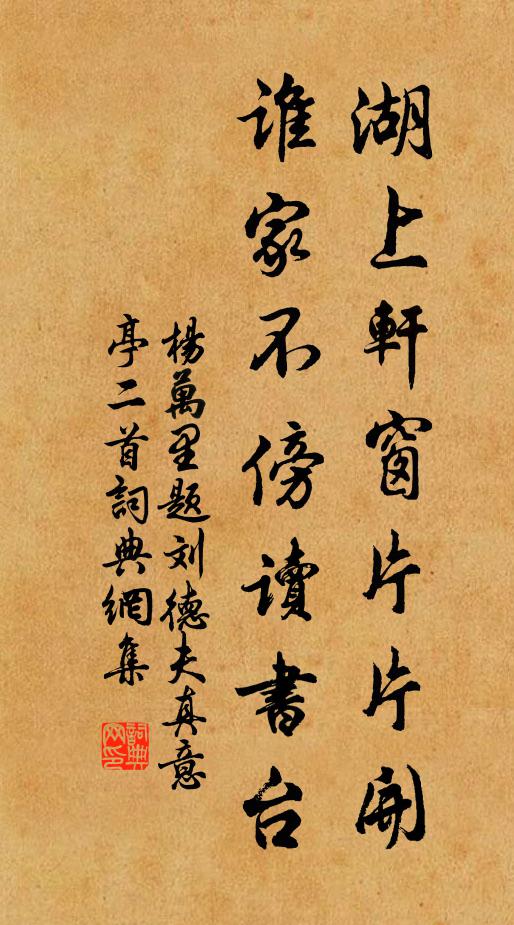 湖上軒窗片片開
誰家不傍讀書台
楊萬里題刘德夫真意
亭二首詞典網集
詞典网印